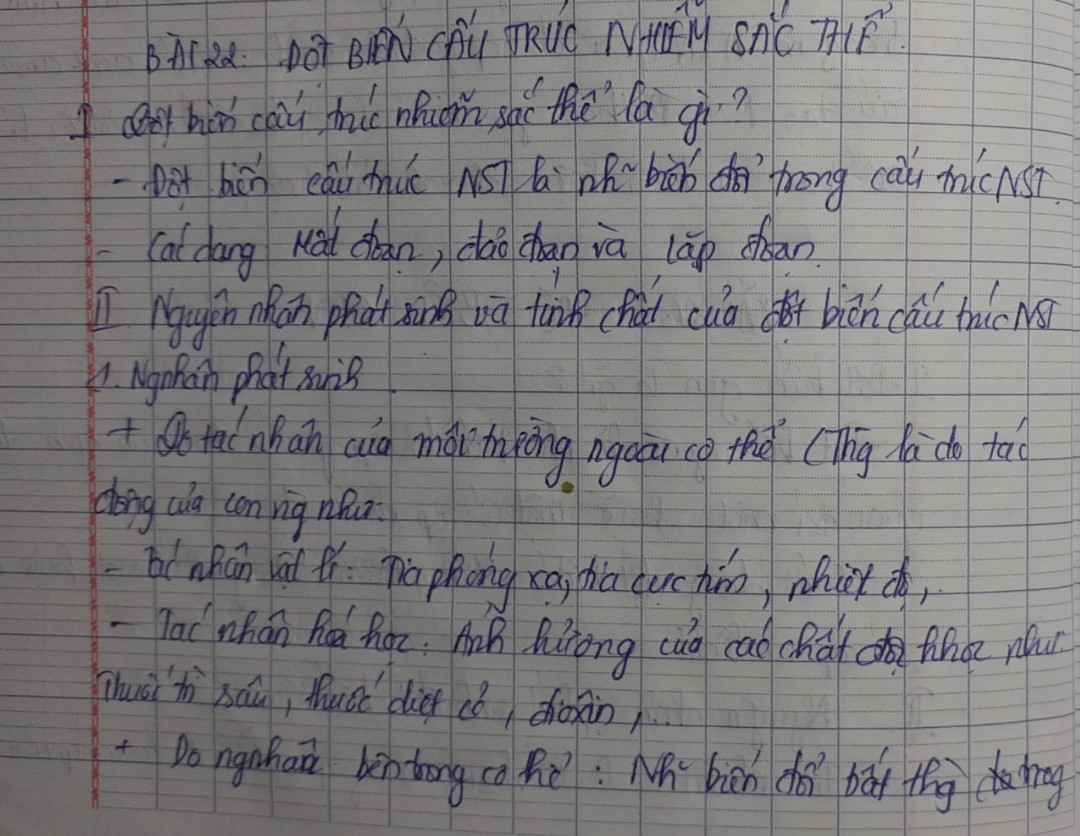 BÀI 22: ĐỘT BIẾN CẤU TRÚC NHIỄM SẮC THỂ
I Đột biến cấu trúc nhiễm sắc thể là gì?
- Đột biến cấu trúc NST là nh~ biến đổi trong cấu trúc NST.
- Các dạng Mất đoạn, đảo đoạn và lặp đoạn.
II Nguyên nhân phát sinh và tính chất của đột biến cấu trúc NST
1. Ngnhân phát sinh
+ Do tác nhân của môi trường ngoài cơ thể (Thg là do tác
động của con ng như:
- Tác nhân vật lí: Tia phóng xạ, tia cực tím, nhiệt độ,..
- Tác nhân hoá học: Ảnh hưởng của các chất độc hhọc như
Thuốc trừ sâu, thuốc diệt cỏ, đioxin,...
+ Do ngnhân bên trong cơ thể: Nh~ biến đổi bất thg trong